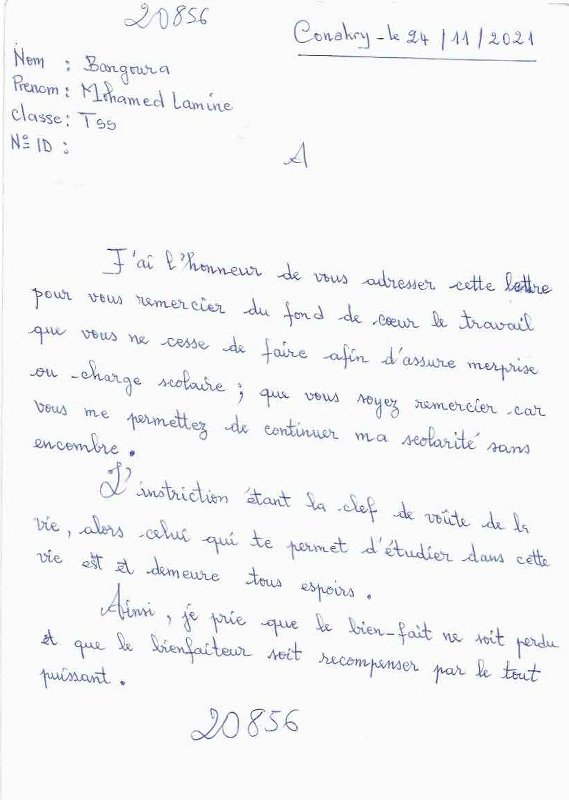 20856
Conakry - le 24 / 11 / 2021
Nom : Bangoura
Prenom : Mohamed Lamine
classe : TSS
N° ID :
A
J'ai l'honneur de vous adresser cette lettre
pour vous remercier du fond de cœur le travail
que vous ne cesse de faire afin d'assure mesprise
ou -charge scolaire ; que vous soyez remercier car
vous me permettez de continuer ma scolarité sans
encombre .
L'instriction étant la clef de voûte de la
vie , alors celui qui te permet d'étudier dans cette
vie est et demeure tous espoirs .
Ainsi , je prie que le bien-fait ne soit perdu
et que le bienfaiteur soit recompenser par le tout
puissant .
20856